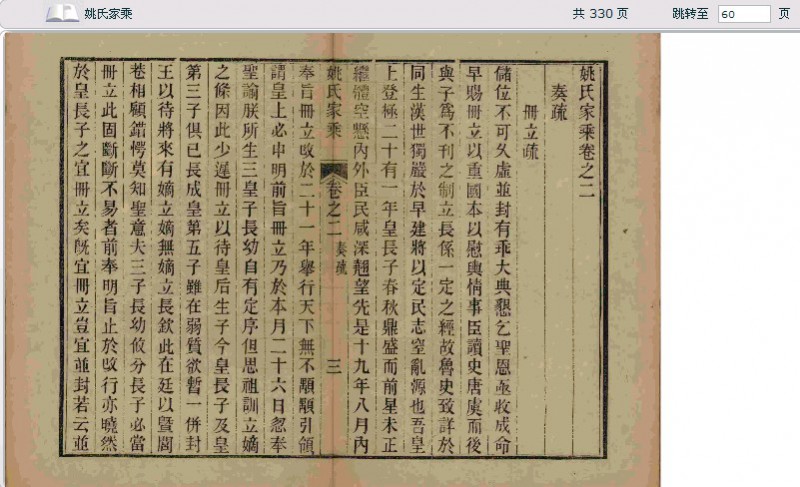 姚氏家乘
共 330 页
跳转至 60 页
姚氏家乘卷之二
奏疏
冊立疏
儲位不可久虛並封有乖大典懇乞聖恩亟收成命
早賜冊立以重國本以慰輿情事臣讀史唐虞而後
與子爲不刊之制立長係一定之經故魯史致詳於
同生漢世獨嚴於早建將以定民志窒亂源也吾皇
上登極二十有一年皇長子春秋鼎盛而前星未正
繼體空懸內外臣民咸深翹望先是十九年八月內
姚氏家乘 卷之二 奏疏 三
奉旨冊立改於二十一年舉行天下無不顒顒引領
謂皇上必申明前旨冊立乃於本月二十六日忽奉
聖諭朕所生三皇子長幼自有定序但思祖訓立嫡
之條因此少遲冊立以待皇后生子今皇長子及皇
第三子俱已長成皇第五子雖在弱質欲暫一併封
王以待將來有嫡立嫡無嫡立長欽此在廷以曁閭
巷相顧錯愕莫知聖意夫三子長幼攸分長子必當
冊立此固斷斷不易者前奉明旨止於改行亦曉然
於皇長子之宜冊立矣旣宜冊立豈宜並封若云並